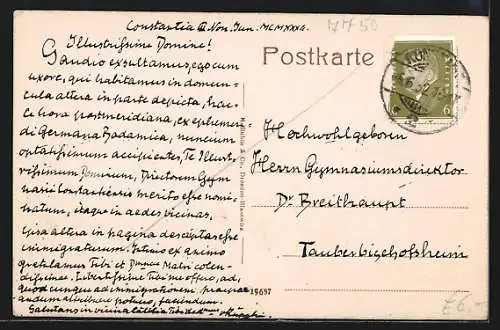 Constantia III Non. Jun. MCMXXXII.
7750
Illustrissime Domine!
Gaudio exsultamus, ego cum
uxore, qui habitamus in domun-
cula altera in parte depicta, hac
hora postmeridiana, ex ephemeri
di Germana Badamica, nuncium
optatissimum accipientes, Te Illust-
rissimum Dominum, Directorem Gym
nasii Constantiensis merito esse nomi-
natum, itaque in aedes vicinas,
altera in pagina descriptas esse
immigraturum. Intimo ex animo
gratulamur Tibi et Matri colen-
dissimae. Libentissime Tibi me offero, ad
quodcunque ad immigrationem praepar-
andum
Salutans
Postkarte
6
Hochwohlgeboren
Herrn Gymnasiumsdirektor
Dr Breithaupt
Tauberbischofsheim
& Co., Dresden
19687
£6,-